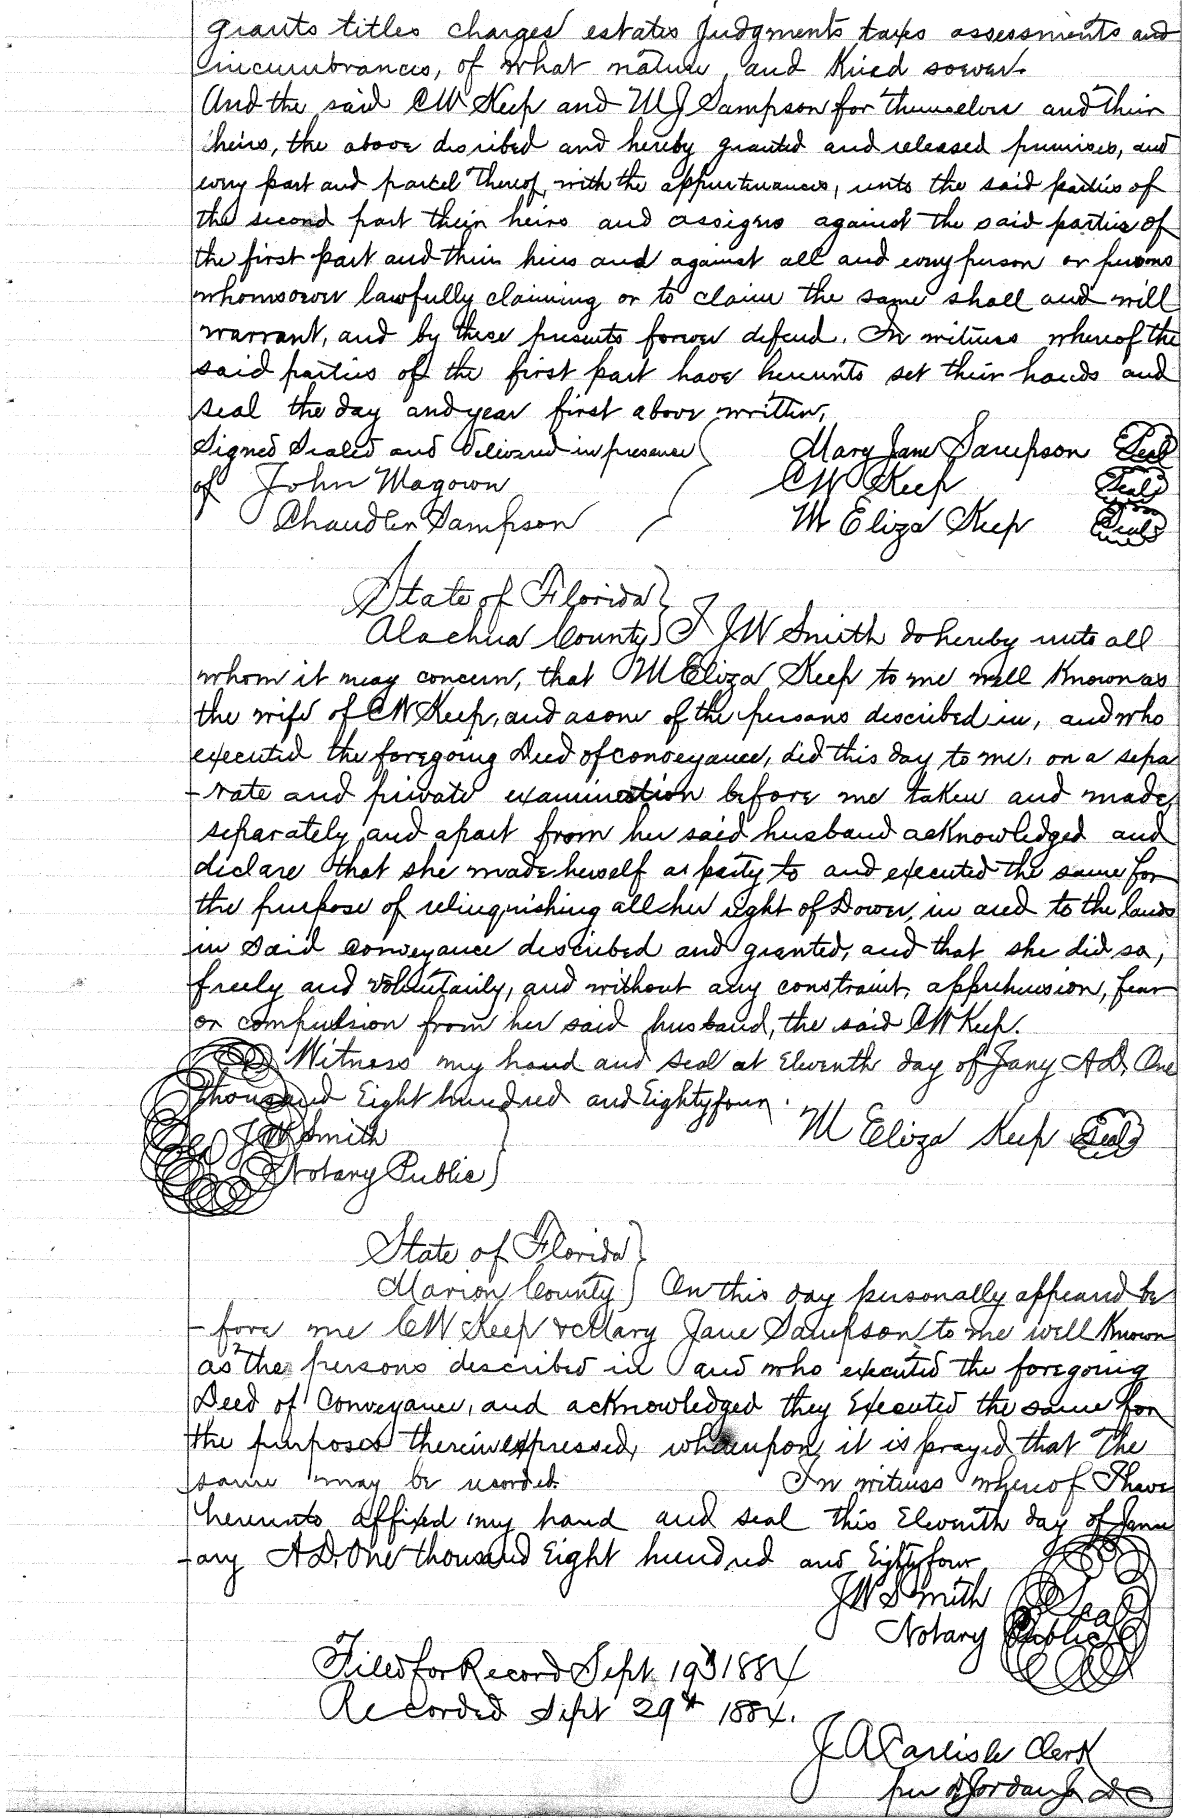 grants titles charges estates Judgments taxes assessments and
incumbrances, of what nature and Kind soever.
And the said CW Keep and MJ Sampson for themselves and their
heirs, the above discribed and hereby granted and released premises, and
every part and parcel thereof, with the appurtenances, unto the said parties of
the second part their heirs and assigns against the said parties of
the first part and their heirs and against all and every person or persons
whomsoever lawfully claiming or to claim the same shall and will
warrant, and by these presents forever defend. In witness whereof the
said parties of the first part have hereunto set their hands and
seal the day and year first above written,
Signed Sealed and Delivered in presence Mary Jane Sampson Seal
of John Magown CW Keep Seal
Chandler Sampson M Eliza Keep Seal
State of Florida
Alachua County I JW Smith do hereby unto all
whom it may concern, that M Eliza Keep to me well Known as
the wife of CW Keep, and as one of the persons described in, and who
executed the foregoing Deed of conveyance, did this day to me, on a sepa
-rate and private examination before me taken and made,
separately and apart from her said husband acKnowledged and
declare that she made herself a party to and executed the same for
the purpose of relinquishing all her right of Dower, in and to the lands
in said conveyance described and granted, and that she did so,
freely and voluntarily, and without any constraint, apprehension, fear
or compulsion from her said husband, the said CW Keep.
Witness my hand and seal at Eleventh day of Jany A.D. One
thousand Eight hundred and Eighty four.
Seal JW Smith M Eliza Keep Seal
Notary Public
State of Florida
Marion County On this day personally appeared be
-fore me CW Keep & Mary Jane Sampson to me well Known
as the persons described in and who executed the foregoing
Deed of Conveyance, and acKnowledged they Executed the same for
the purposes therein expressed, whereupon it is prayed that the
same may be recorded. In witness whereof I have
hereunto affixed my hand and seal this Eleventh day of Janu
-ary A.D. One thousand Eight hundred and Eighty four
JW Smith Seal
Notary Public
Filed for Record Sept 19th 1884
Recorded Sept 29th 1884.
J A Carlisle Clerk
per Jordan Jr DC